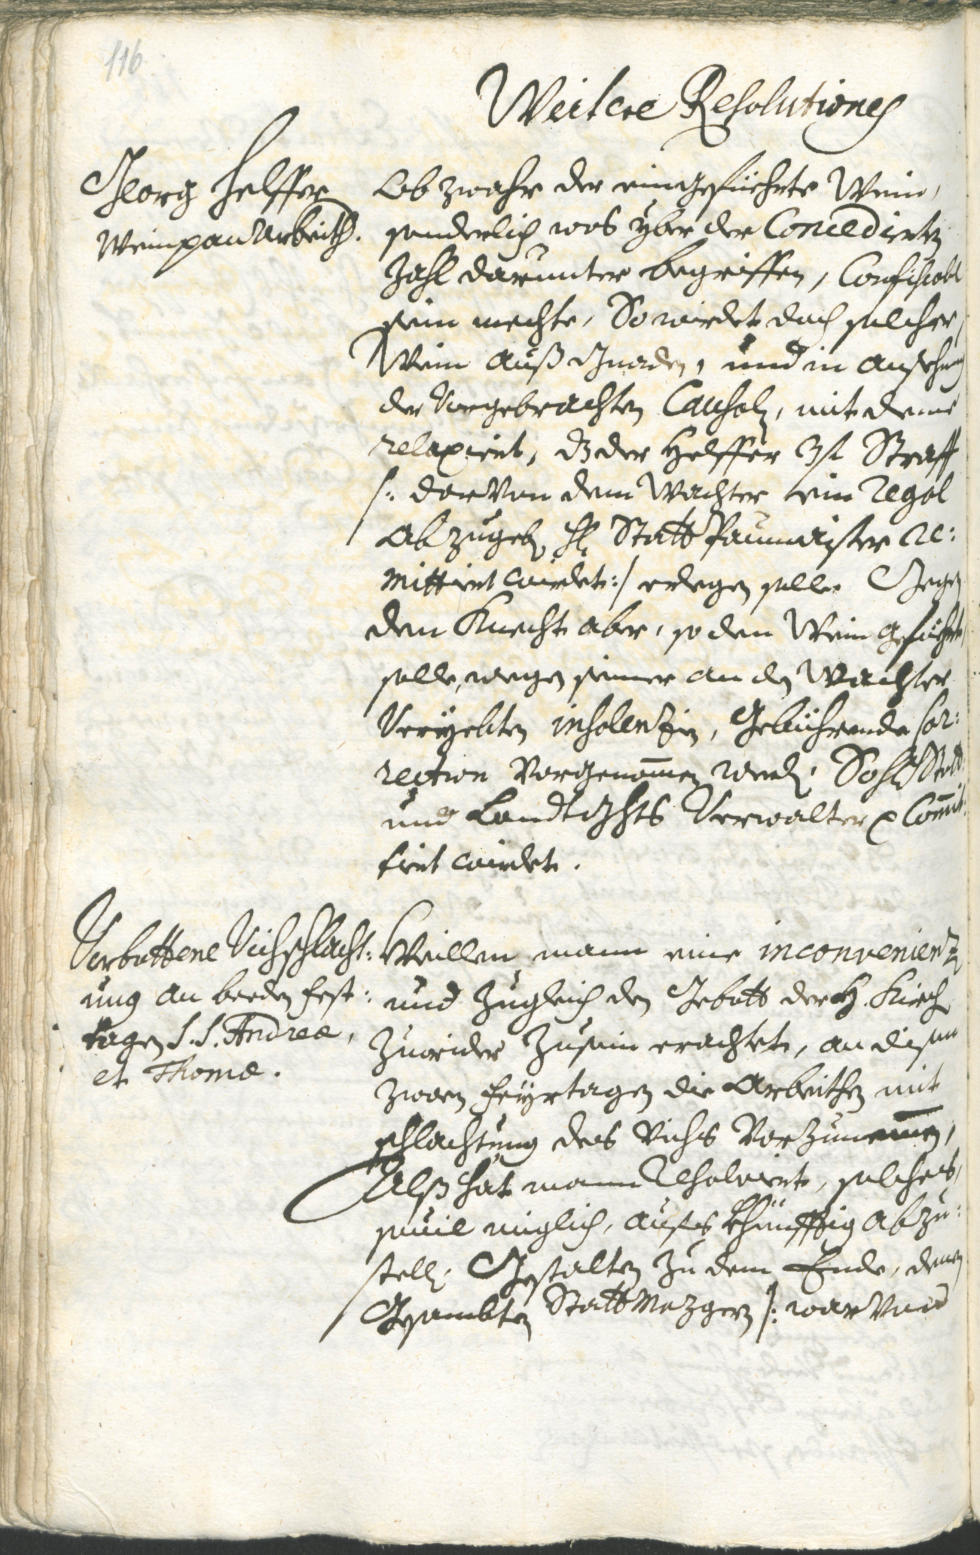 116
Weitere Resolutiones
Georg Helffer
Weinpau Arbeith.
Ob zwahr der eingefüehrte Wein,
sonderlich was yber der Concedierten
Zahl darunter begriffen, Confiscabl
sein mechte, So wirdet doch solcher
Wein auß Gnaden, und in ansehung
der Vorgebrachten Causaln, mit deme
relaxiert, dz der Helffer Straff
/: darvon dem Wachter ein Regal
Abzugeb, H Statt Paumaister re:
mittiert wirdet :/ erlegen solle. Gegen
dem Knecht aber, so den Wein gefüehrt,
solle, wegen seiner an den Wachter
Veryebten insolentzien, Gebührende Cor:
rection Vorgenomen werd. So H Statt
und Landtgchts Verwalter Comit:
tirt wirdet.
Verbottene Vichschlacht:
ung an beeden Fest:
tagen S.S. Andreæ,
et Thomæ.
Weillen mann eine inconvenientz
und zugleich den Gebott der H. Kirch
zuwider zusein erachtet, an disen
zween Feyrtagen die Arbeithen mit
schlachtung des Vichs Vorzunemen,
Alß hat mann Resolviert, solches,
sovil miglich, aufs khünfftig abzu:
stell. Gestalten zu dem Ende, denen
Gesambten Statt Mezgern /: warvon